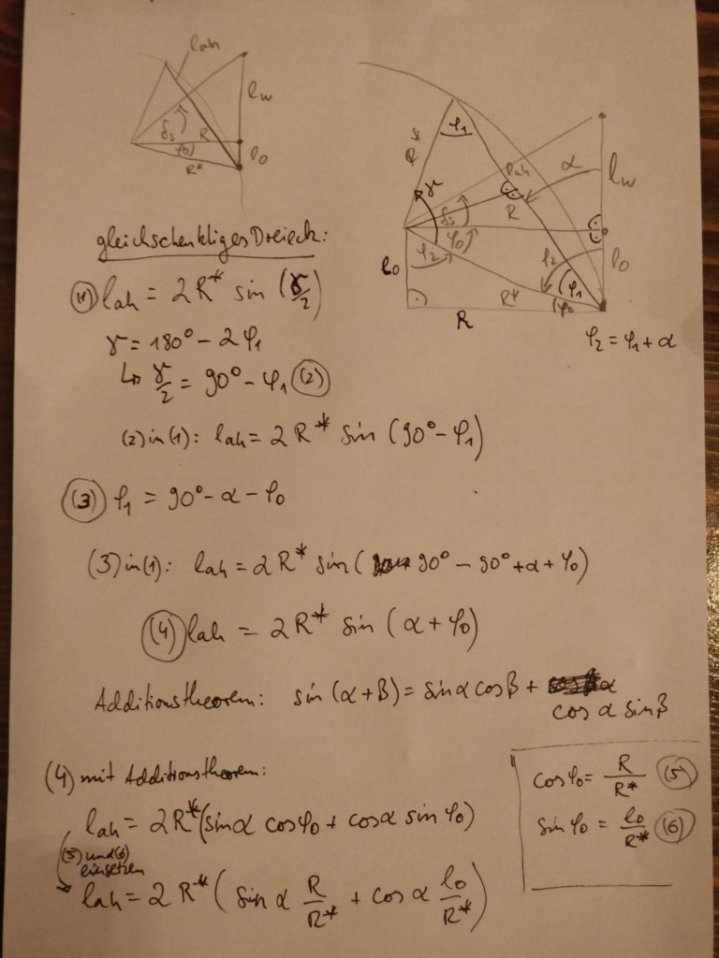 lah
lw
δs
R
φ0
R*
l0
φ1
R*
lah
α
lw
γ
R
δs
φ0
l0
φ2
φ2
l0
φ1
R*
φ0
R
φ2 = φ1 + α
gleichschenkliges Dreieck:
(1) lah = 2R* sin (γ/2)
γ = 180° - 2φ1
↳ γ/2 = 90° - φ1 (2)
(2) in (1): lah = 2R* sin (90° - φ1)
(3) φ1 = 90° - α - φ0
(3) in (1): lah = 2R* sin ( 90° - 90° + α + φ0)
(4) lah = 2R* sin (α + φ0)
Additionstheorem: sin (α + β) = sin α cos β +
cos α sin β
(4) mit Additionstheorem:
cos φ0 = R/R* (5)
sin φ0 = l0/R* (6)
lah = 2R* (sin α cos φ0 + cos α sin φ0)
(5) und (6)
einsetzen
lah = 2R* (sin α R/R* + cos α l0/R*)